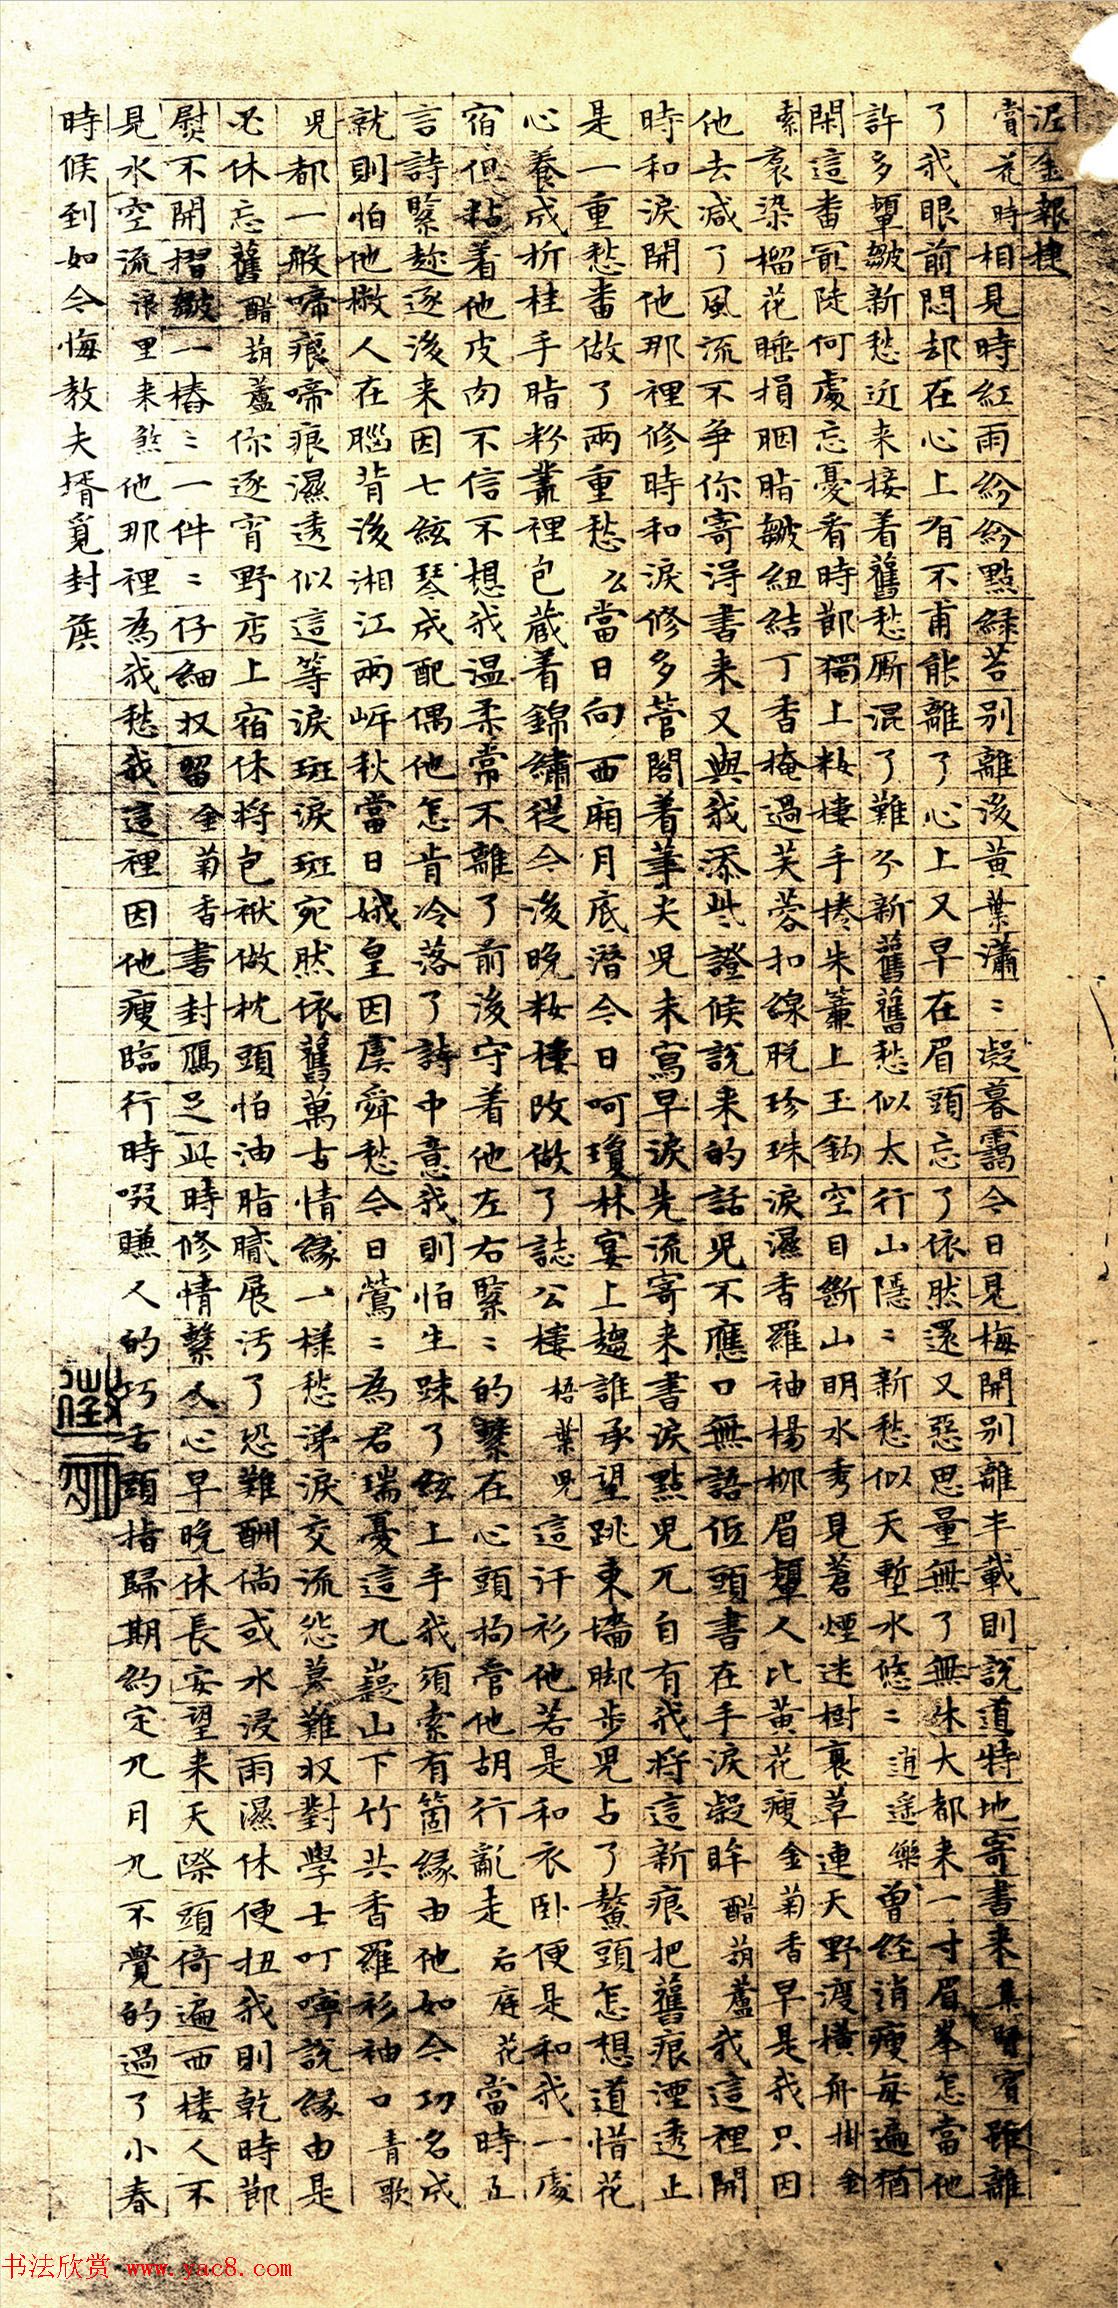 泥金報捷
賞花時相見時紅雨紛紛點緑苔別離後黃葉瀟〻凝暮靄今日見梅開別離半載則說道特地寄書来集賢賓雖離
了我眼前悶却在心上有不甫能離了心上又早在眉頭忘了依然還又惡思量無了無休大都来一寸眉峯怎當他
許多顰皺新愁近来接着舊愁厮混了難分新舊舊愁似太行山隱〻新愁似天塹水悠〻逍遥樂曾經消瘦每遍猶
閑這番冣陡何處忘憂看時節獨上粧樓手捲朱簾上玉鈎空目斷山明水秀見蒼煙迷樹衰草連天野渡橫舟掛金
索裙染榴花睡損胭脂皺紐結丁香掩過芙蓉扣線脫珍珠淚濕香羅袖楊柳眉顰人比黃花瘦金菊香早是我只因
他去減了風流不争你寄淂書来又與我添些證候說来的話児不應口無語低頭書在手淚凝眸醋葫蘆我這裡開
時和淚開他那裡修時和淚修多管閣着筆尖児未寫早淚先流寄来書淚點児兀自有我将這新痕把舊痕湮透止
是一重愁番做了兩重愁么當日向西廂月底潛今日呵瓊林宴上趨誰承望跳東墻脚步児占了鰲頭怎想道惜花
心養成折桂手脂粉叢裡包藏着錦繡從今後晚粧樓改做了誌公樓梧葉児這汗衫他若是和衣卧便是和我一處
宿但粘着他皮肉不信不想我温柔常不離了前後守着他左右緊〻的繫在心頭拘管他胡行亂走后庭花當時五
言詩緊趂逐後来因七絃琴成配偶他怎肯冷落了詩中意我則怕生踈了絃上手我須索有箇緣由他如今功名成
就則怕他撇人在腦背後湘江兩岍秋當日娥皇因虞舜愁今日鶯〻為君瑞憂這九嶷山下竹共香羅衫袖口青歌
児都一般啼痕啼痕濕透似這等淚斑淚斑宛然依舊萬古情緣一樣愁涕淚交流怨慕難收對學士叮嚀說緣由是
必休忘舊醋葫蘆你逐宵野店上宿休将包袱做枕頭怕油脂膩展污了恐難酬倘或水浸雨濕休便扭我則乾時節
熨不開摺皺一樁〻一件〻仔細收留金菊香書封鴈足此時修情繫人心早晚休長安望来天際頭倚遍西樓人不
見水空流浪里来煞他那裡為我愁我這裡因他瘦臨行時啜賺人的巧舌頭指歸期約定九月九不覺的過了小春
時候到如今悔教夫壻覓封侯
书法欣赏 www.yac8.com